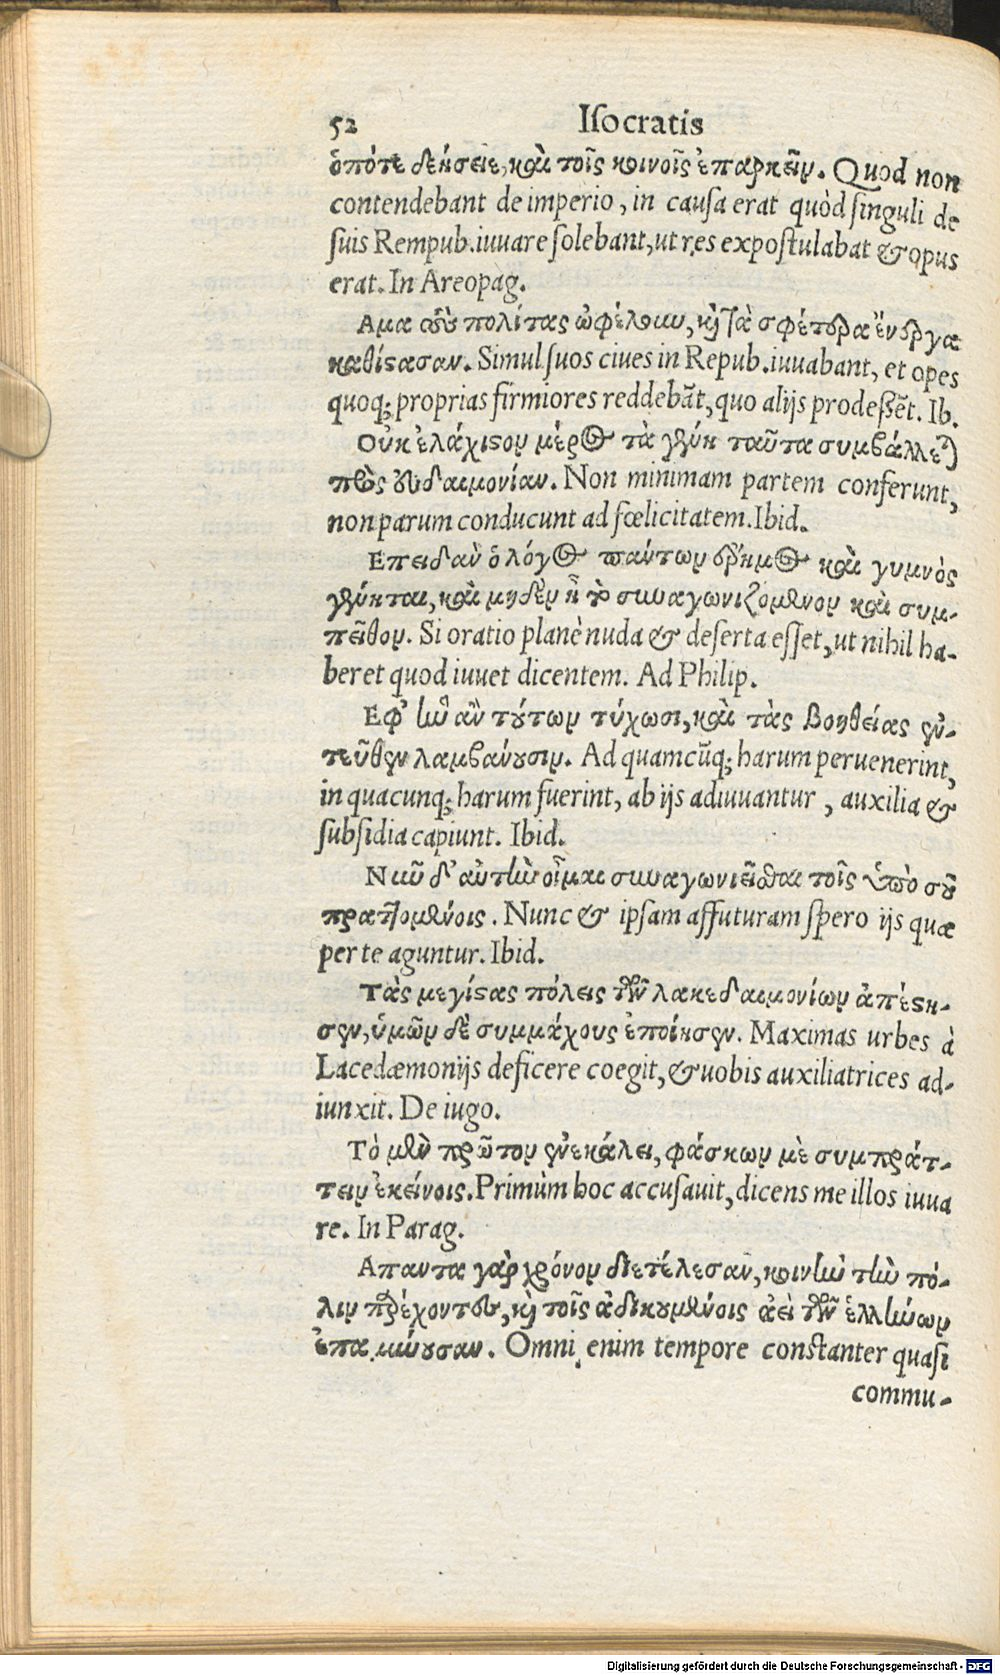 52 Iſocratis
ὁπότε δεήσειε, καὶ τοῖς κοινοῖς ἐπαρκεῖν. Quod non
contendebant de imperio, in cauſa erat quòd ſinguli de
ſuis Rempub. iuuare ſolebant, ut res expoſtulabat & opus
erat. In Areopag.
Αμα τοὺς πολίτας ὠφέλουν, κ̀ τὰ σφέτερα ἔνεργα
καθίστασαν. Simul ſuos ciues in Repub. iuuabant, et opes
quoq; proprias firmiores reddebãt, quo alijs prodeſſẽt. Ib.
Οὐκ ἐλάχιστον μέρος τὰ γένη ταῦτα συμβάλλεται
πρὸς εὐδαιμονίαν. Non minimam partem conferunt,
non parum conducunt ad fœlicitatem. Ibid.
Επειδὰν ὁ λόγος πάντων ἔρημος καὶ γυμνὸς
γένηται, καὶ μηδὲν ᾖ τὸ συναγωνιζόμενον καὶ συμ-
πεῖθον. Si oratio planè nuda & deſerta eſſet, ut nihil ha-
beret quod iuuet dicentem. Ad Philip.
Εφ' ἣν ἂν τούτων τύχωσι, καὶ τὰς βοηθείας ἐν-
τεῦθεν λαμβάνουσιν. Ad quamcũq; harum peruenerint,
in quacunq; harum fuerint, ab ijs adiuuantur, auxilia &
ſubſidia capiunt. Ibid.
Νῦν δ' αὐτὴν οἶμαι συναγωνιεῖσθαι τοῖς ὑπὸ σοῦ
πραττομένοις. Nunc & ipſam affuturam ſpero ijs quæ
per te aguntur. Ibid.
Τὰς μεγίστας πόλεις τῶν λακεδαιμονίων ἀπέστη-
σεν, ὑμῶν δὲ συμμάχους ἐποίησεν. Maximas urbes à
Lacedæmonijs deficere coegit, & uobis auxiliatrices ad-
iunxit. De iugo.
Τὸ μὲν πρῶτον ἐνεκάλει, φάσκων μὲ συμπράτ-
τειν ἐκείνοις. Primùm hoc accuſauit, dicens me illos iuua
re. In Parag.
Απαντα γὰρ χρόνον διετέλεσαν, κοινὴν τὴν πό-
λιν παρέχοντες, κ̀ τοῖς ἀδικουμένοις ἀεὶ τῶν ἑλλήνων
ἐπαμύνουσαν. Omni enim tempore conſtanter quaſi
commu-
Digitalisierung gefördert durch die Deutsche Forschungsgemeinschaft - DFG